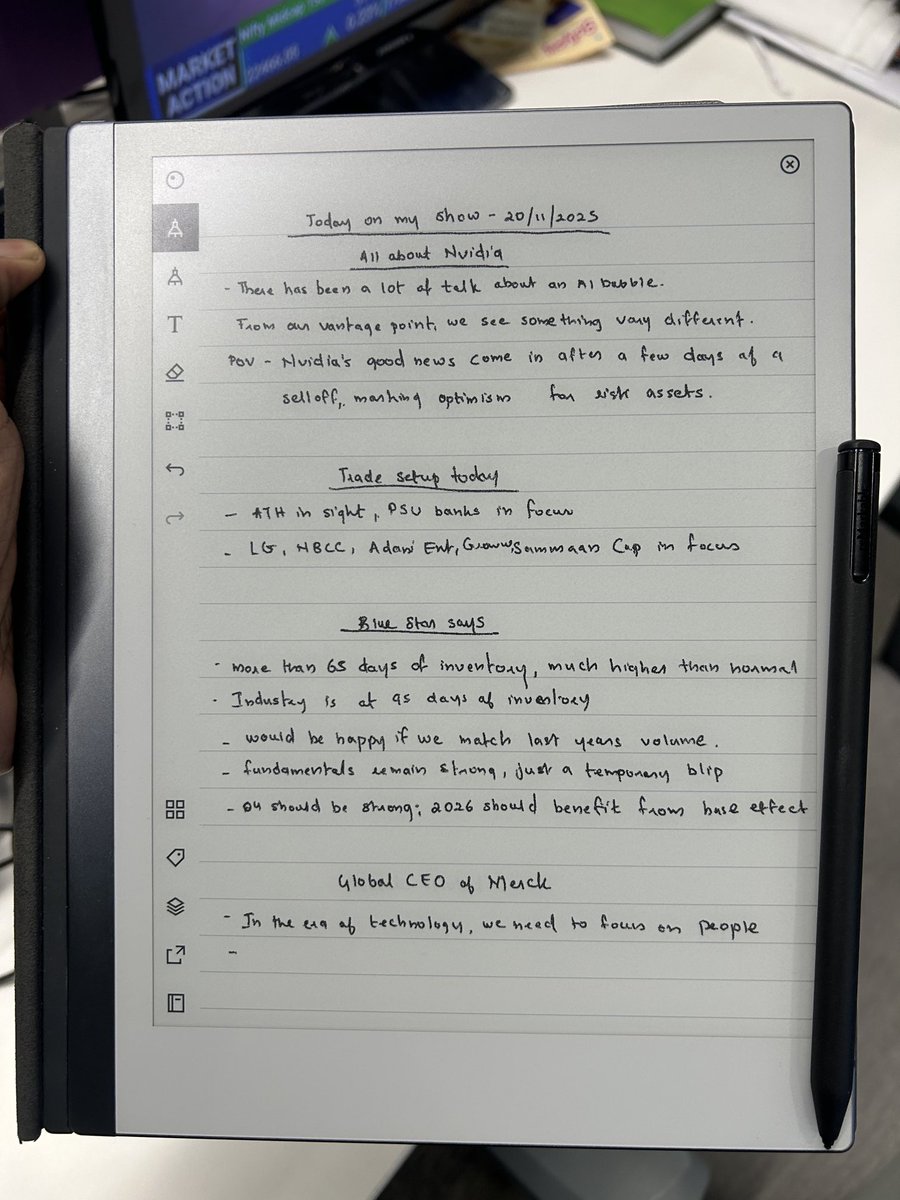 MARKET
ACTION
Today on my show - 20/11/2025
All about Nvidia
- There has been a lot of talk about an AI bubble.
From our vantage point, we see something very different.
POV - Nvidia's good news come in after a few days of a
selloff, marking optimism for risk assets.
Trade setup today
- ATH in sight, PSU banks in focus
- LG, NBCC, Adani Ent, Groww, Sammaan Cap in focus
Blue Star says
- more than 65 days of inventory, much higher than normal
- Industry is at 95 days of inventory
- would be happy if we match last years volume.
- fundamentals remain strong, just a temporary blip
- Q4 should be strong; 2026 should benefit from base effect
Global CEO of Merck
- In the era of technology, we need to focus on people
-